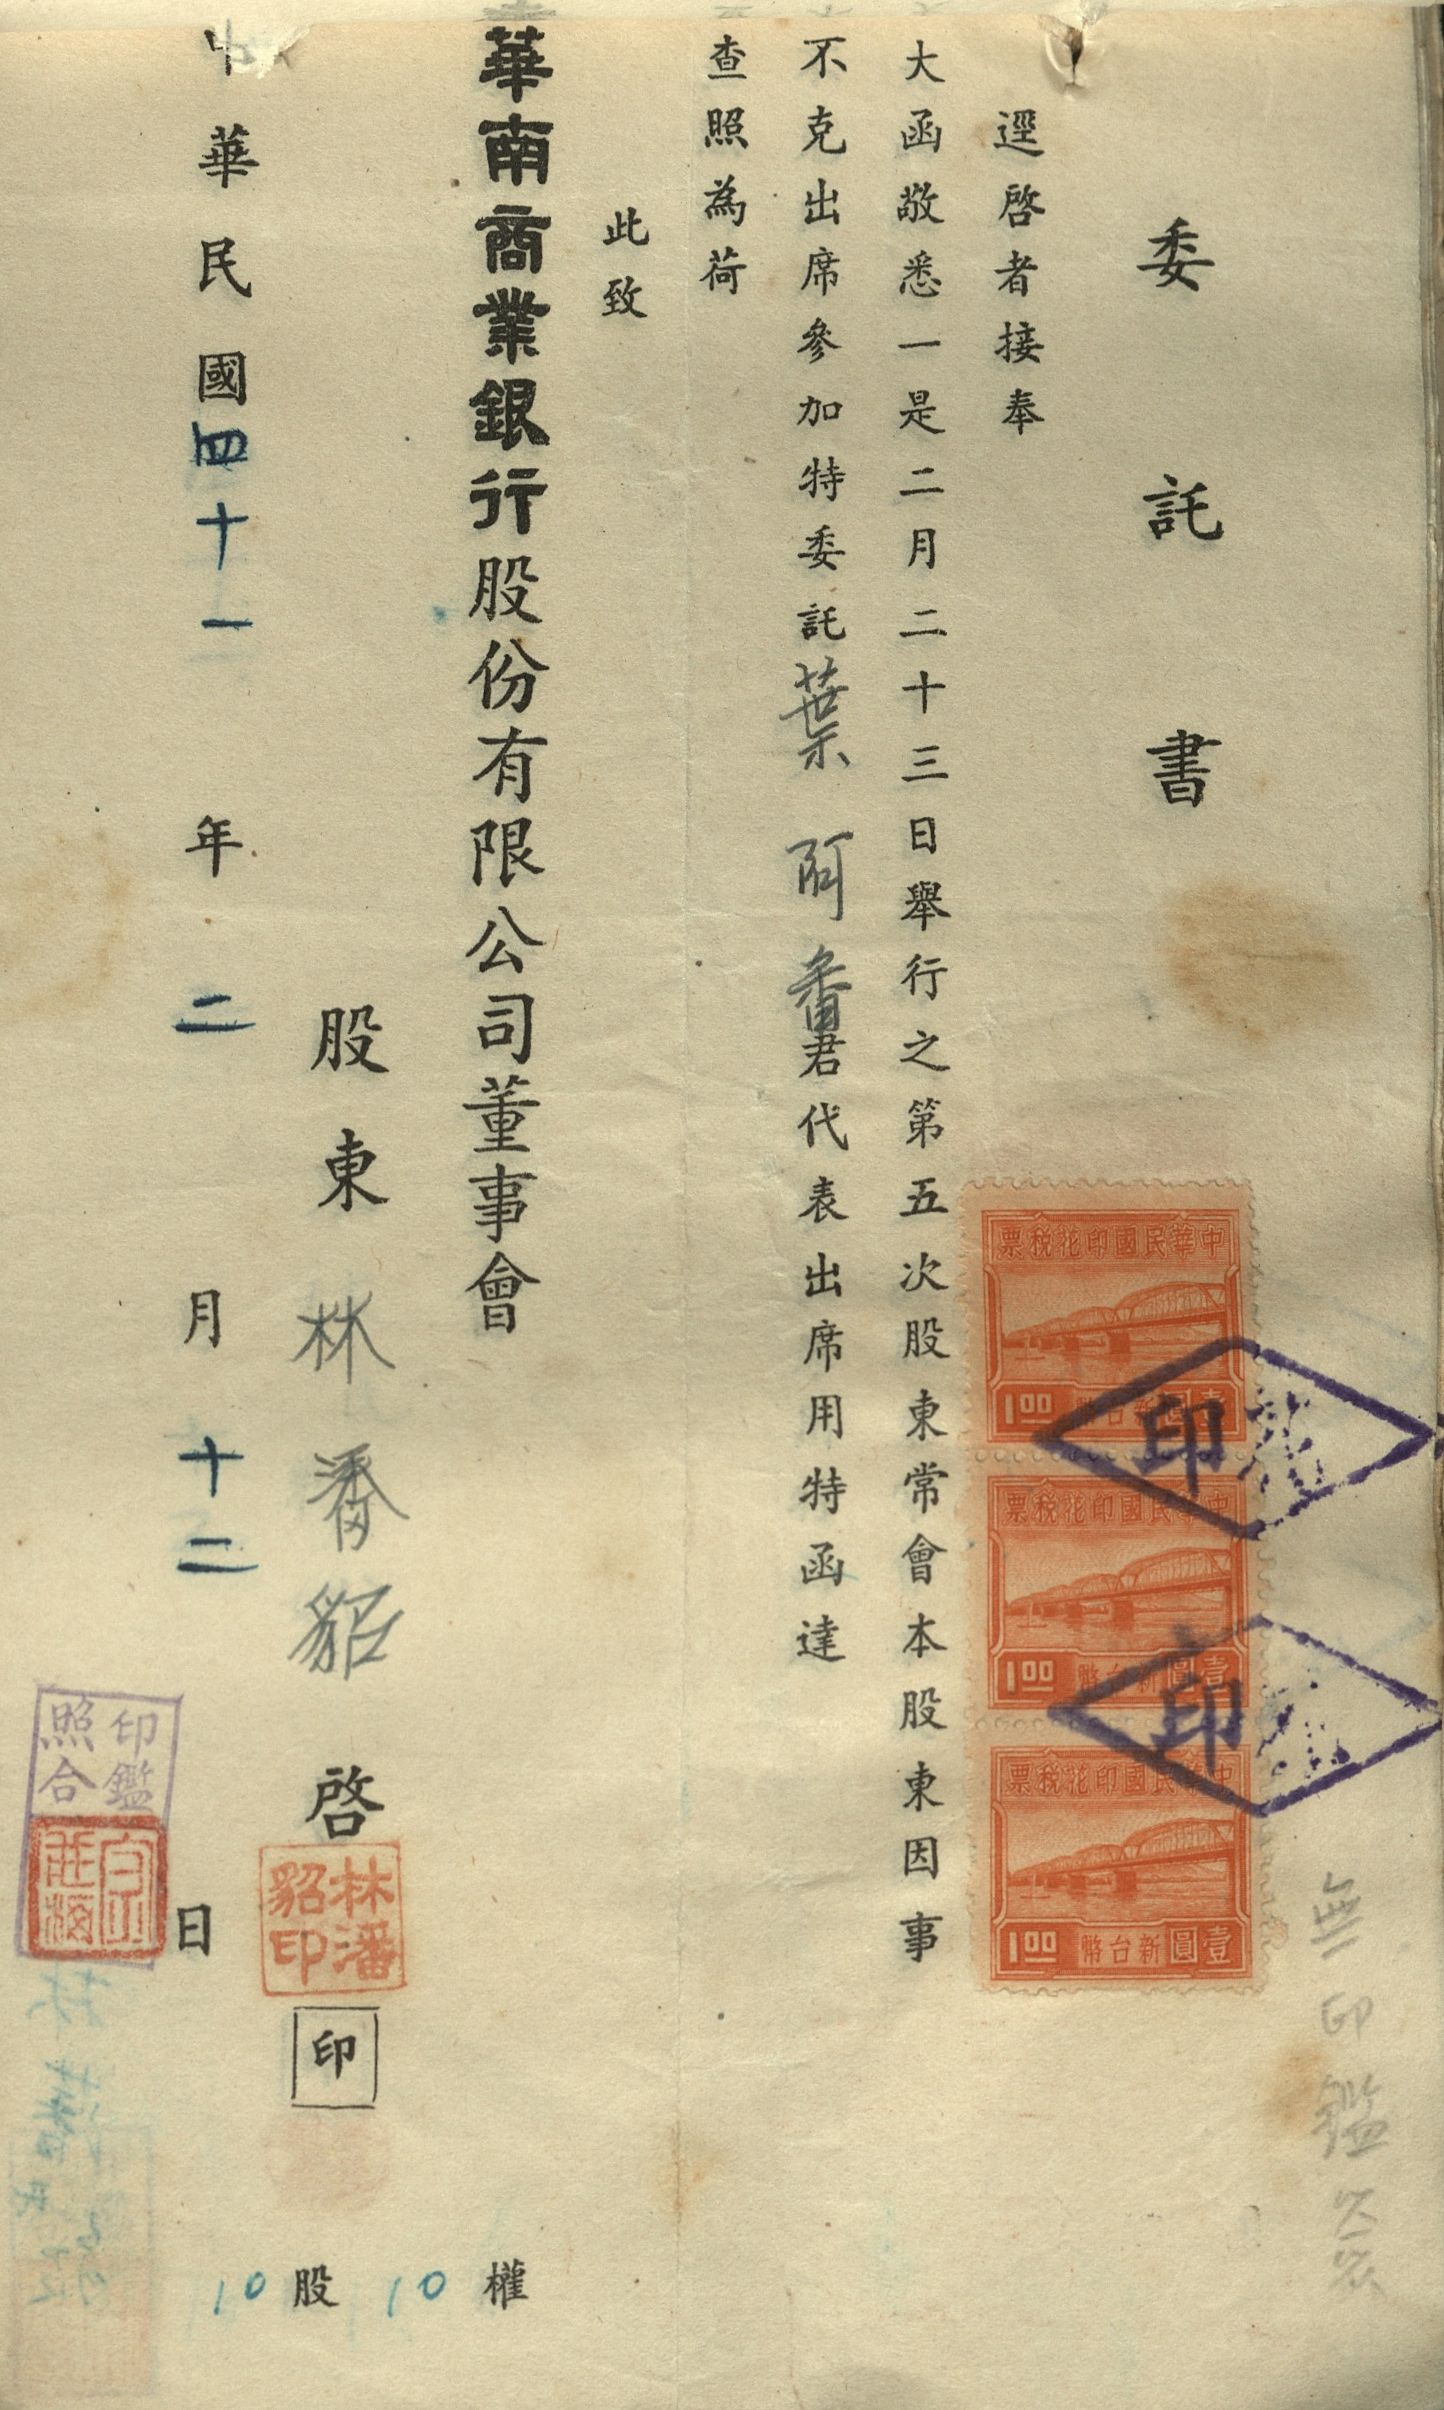 委託書
逕啓者接奉
大函敬悉一是二月二十三日舉行之第五次股東常會本股東因事
不克出席參加特委託葉阿番君代表出席用特函達
查照為荷
此致
華南商業銀行股份有限公司董事會
股東 林潘貂 啓 印
中華民國四十一年二月十二日
10股 10權
中華民國印花稅票
1.00 新台幣壹圓
中華民國印花稅票
1.00 新台幣壹圓
中華民國印花稅票
1.00 新台幣壹圓
印
印
無印鑑
林潘貂印
印鑑照合